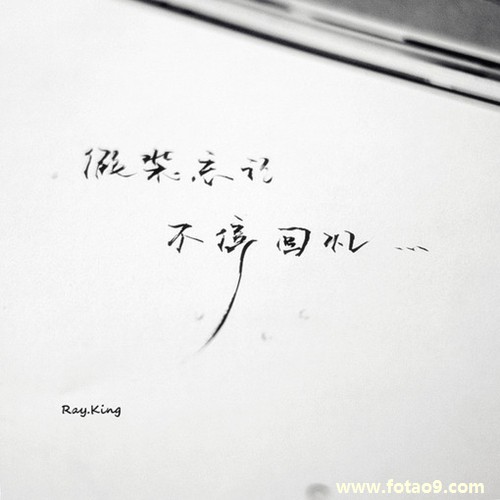 假装忘记
不停回忆 ...
Ray.King
www.fotao9.com